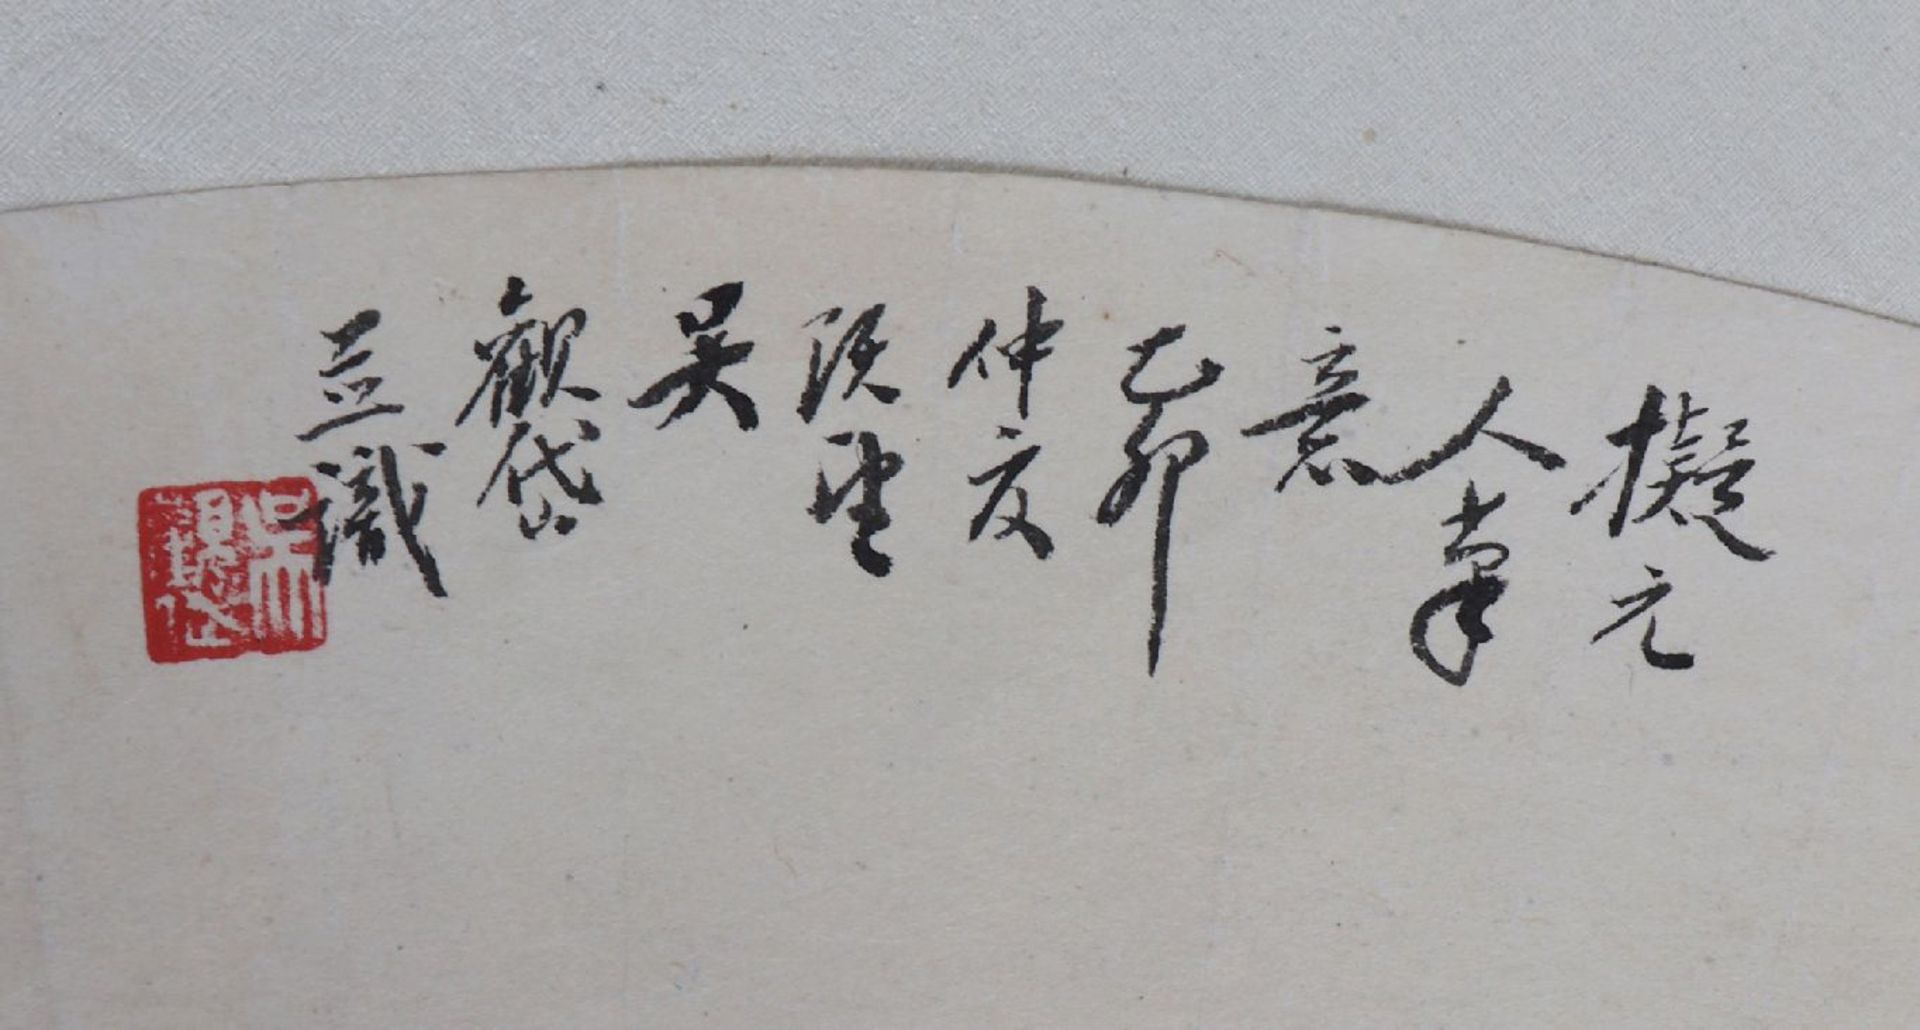 擬元
人筆
意
乙卯
仲夏
既望
吳
觀岱
並識
吳觀岱